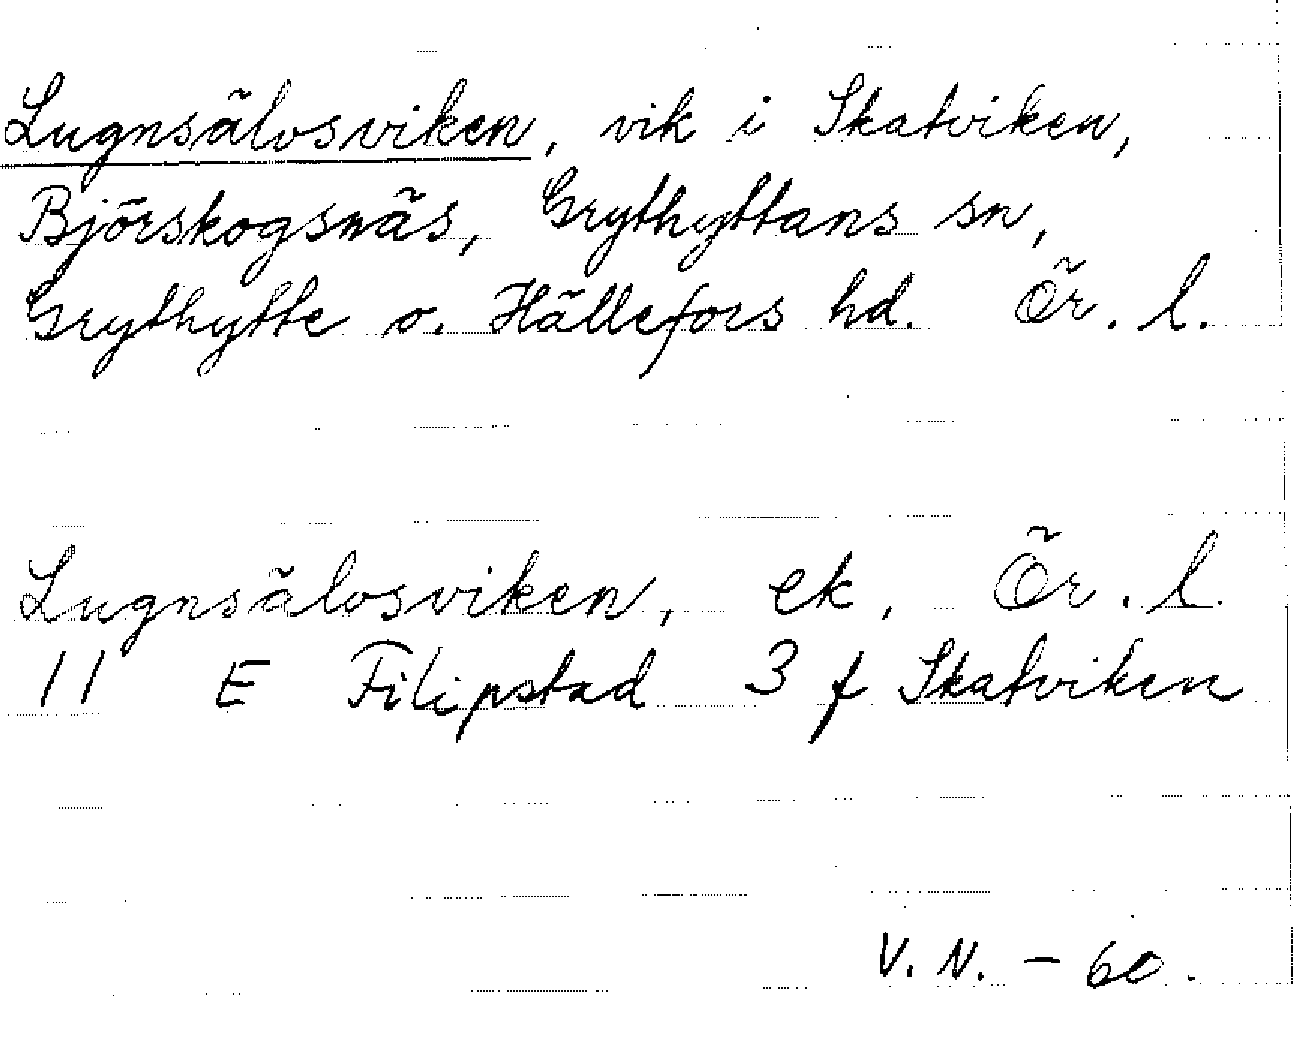 Lugnsälosviken, vik i Skatviken,
Björskogsnäs, Grythyttans sn,
Grythytte o. Hällefors hd. Ör. l.
Lugnsälosviken, ek, Ör. l.
11 E Filipstad 3 f Skatviken
V. N. - 60.